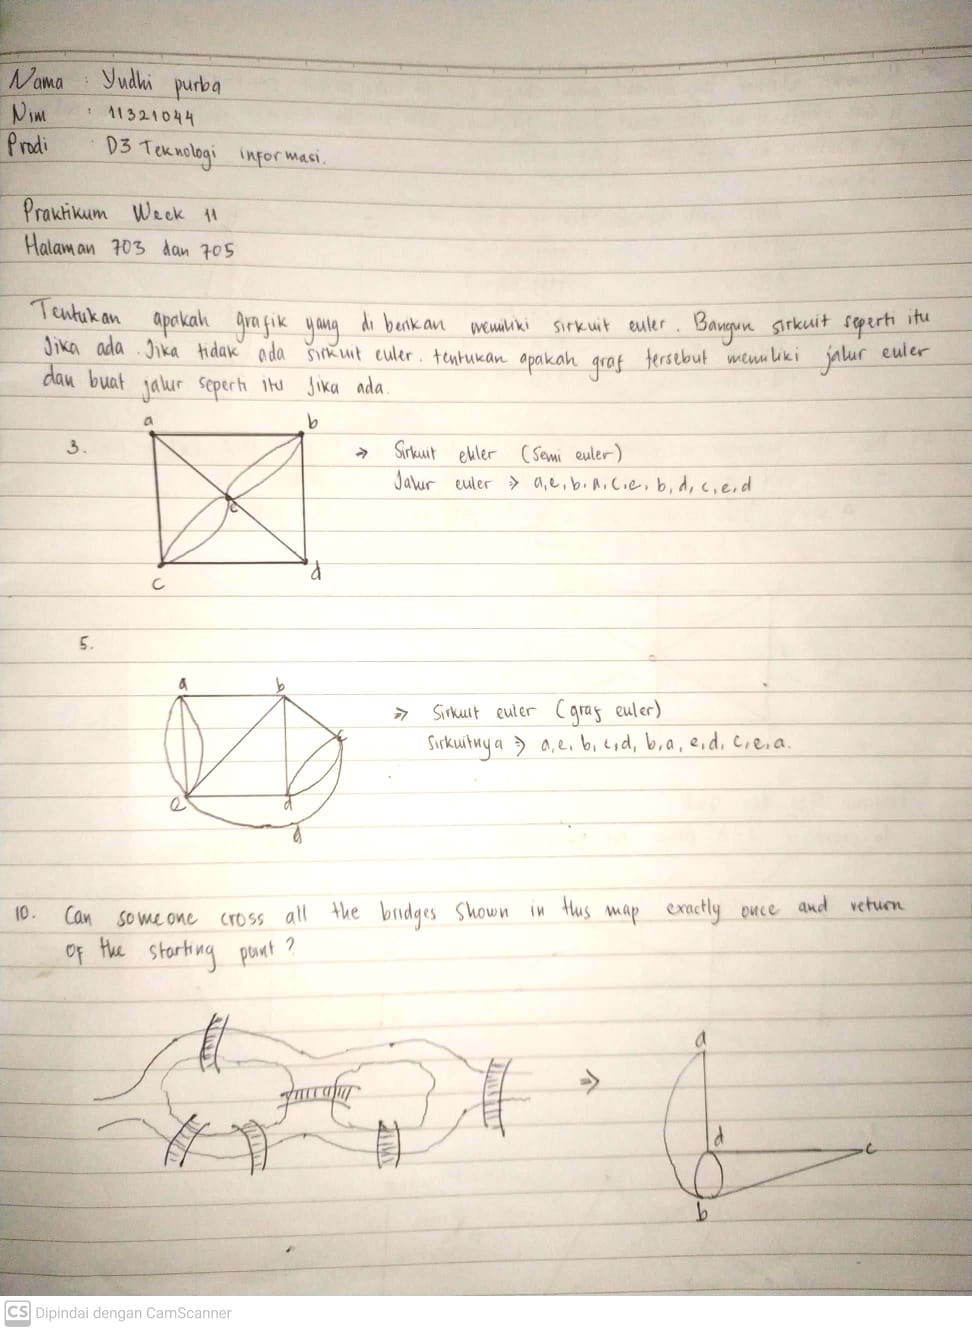 Nama : Yudhi purba
Nim : 11321044
Prodi : D3 Teknologi informasi.
Praktikum Week 11
Halaman 703 dan 705
Tentukan apakah grafik yang di berikan memiliki sirkuit euler. Bangun sirkuit seperti itu
Jika ada. Jika tidak ada sirkuit euler. tentukan apakah graf tersebut memiliki jalur euler
dan buat jalur seperti itu jika ada.
3.
a
b
e
c
d
→ Sirkuit euler (semi euler)
Jalur euler ⇒ a, e, b, a, c, e, b, d, c, e, d
5.
a
b
c
e
d
d
⇒ Sirkuit euler (graf euler)
Sirkuitnya ⇒ a, e, b, c, d, b, a, e, d, c, e, a.
10. Can someone cross all the bridges shown in this map exactly once and return
of the starting point?
⇒
a
d
c
b
CS Dipindai dengan CamScanner